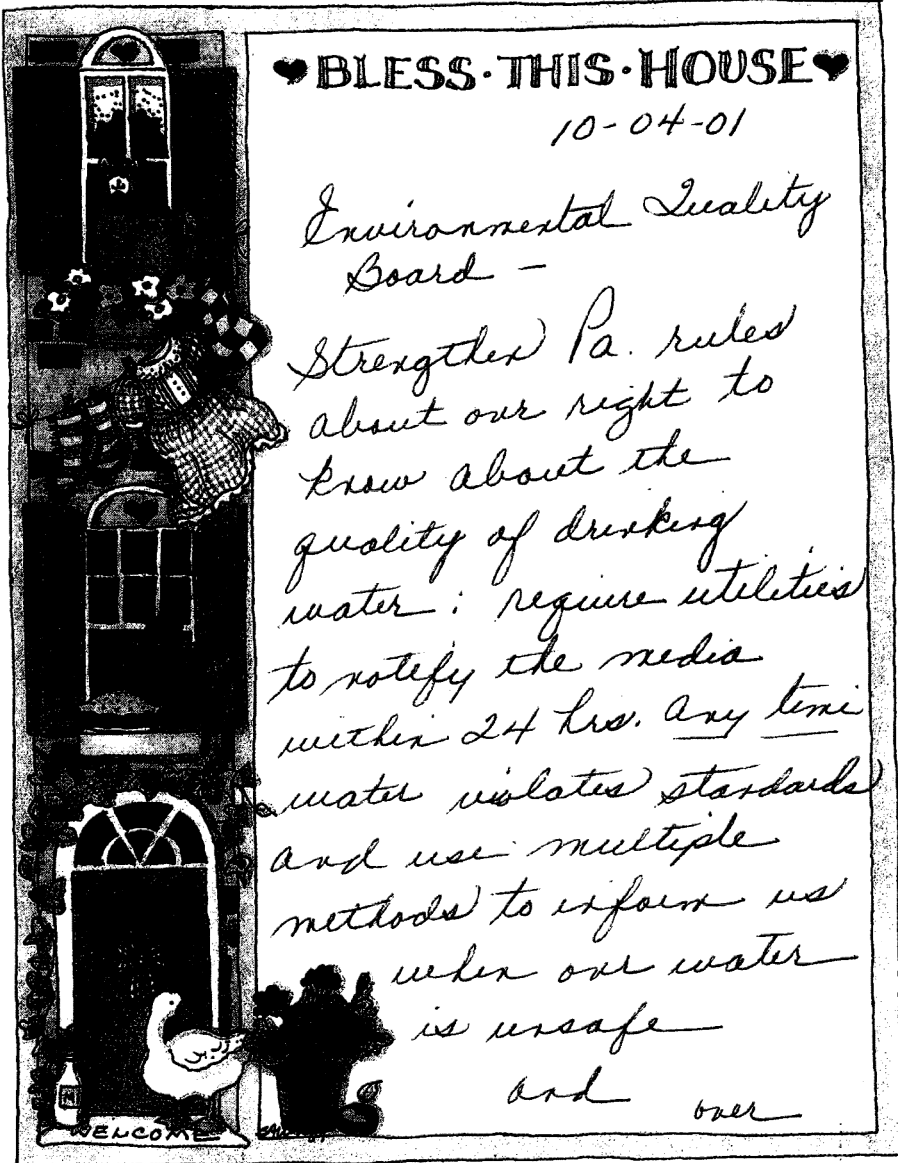 ♥BLESS·THIS·HOUSE♥
10-04-01
Environmental Quality
Board –
Strengthen Pa. rules
about our right to
know about the
quality of drinking
water : require utilities
to notify the media
within 24 hrs. any time
water violates standards
and use multiple
methods to inform us
when our water
is unsafe
and
over
WELCOME